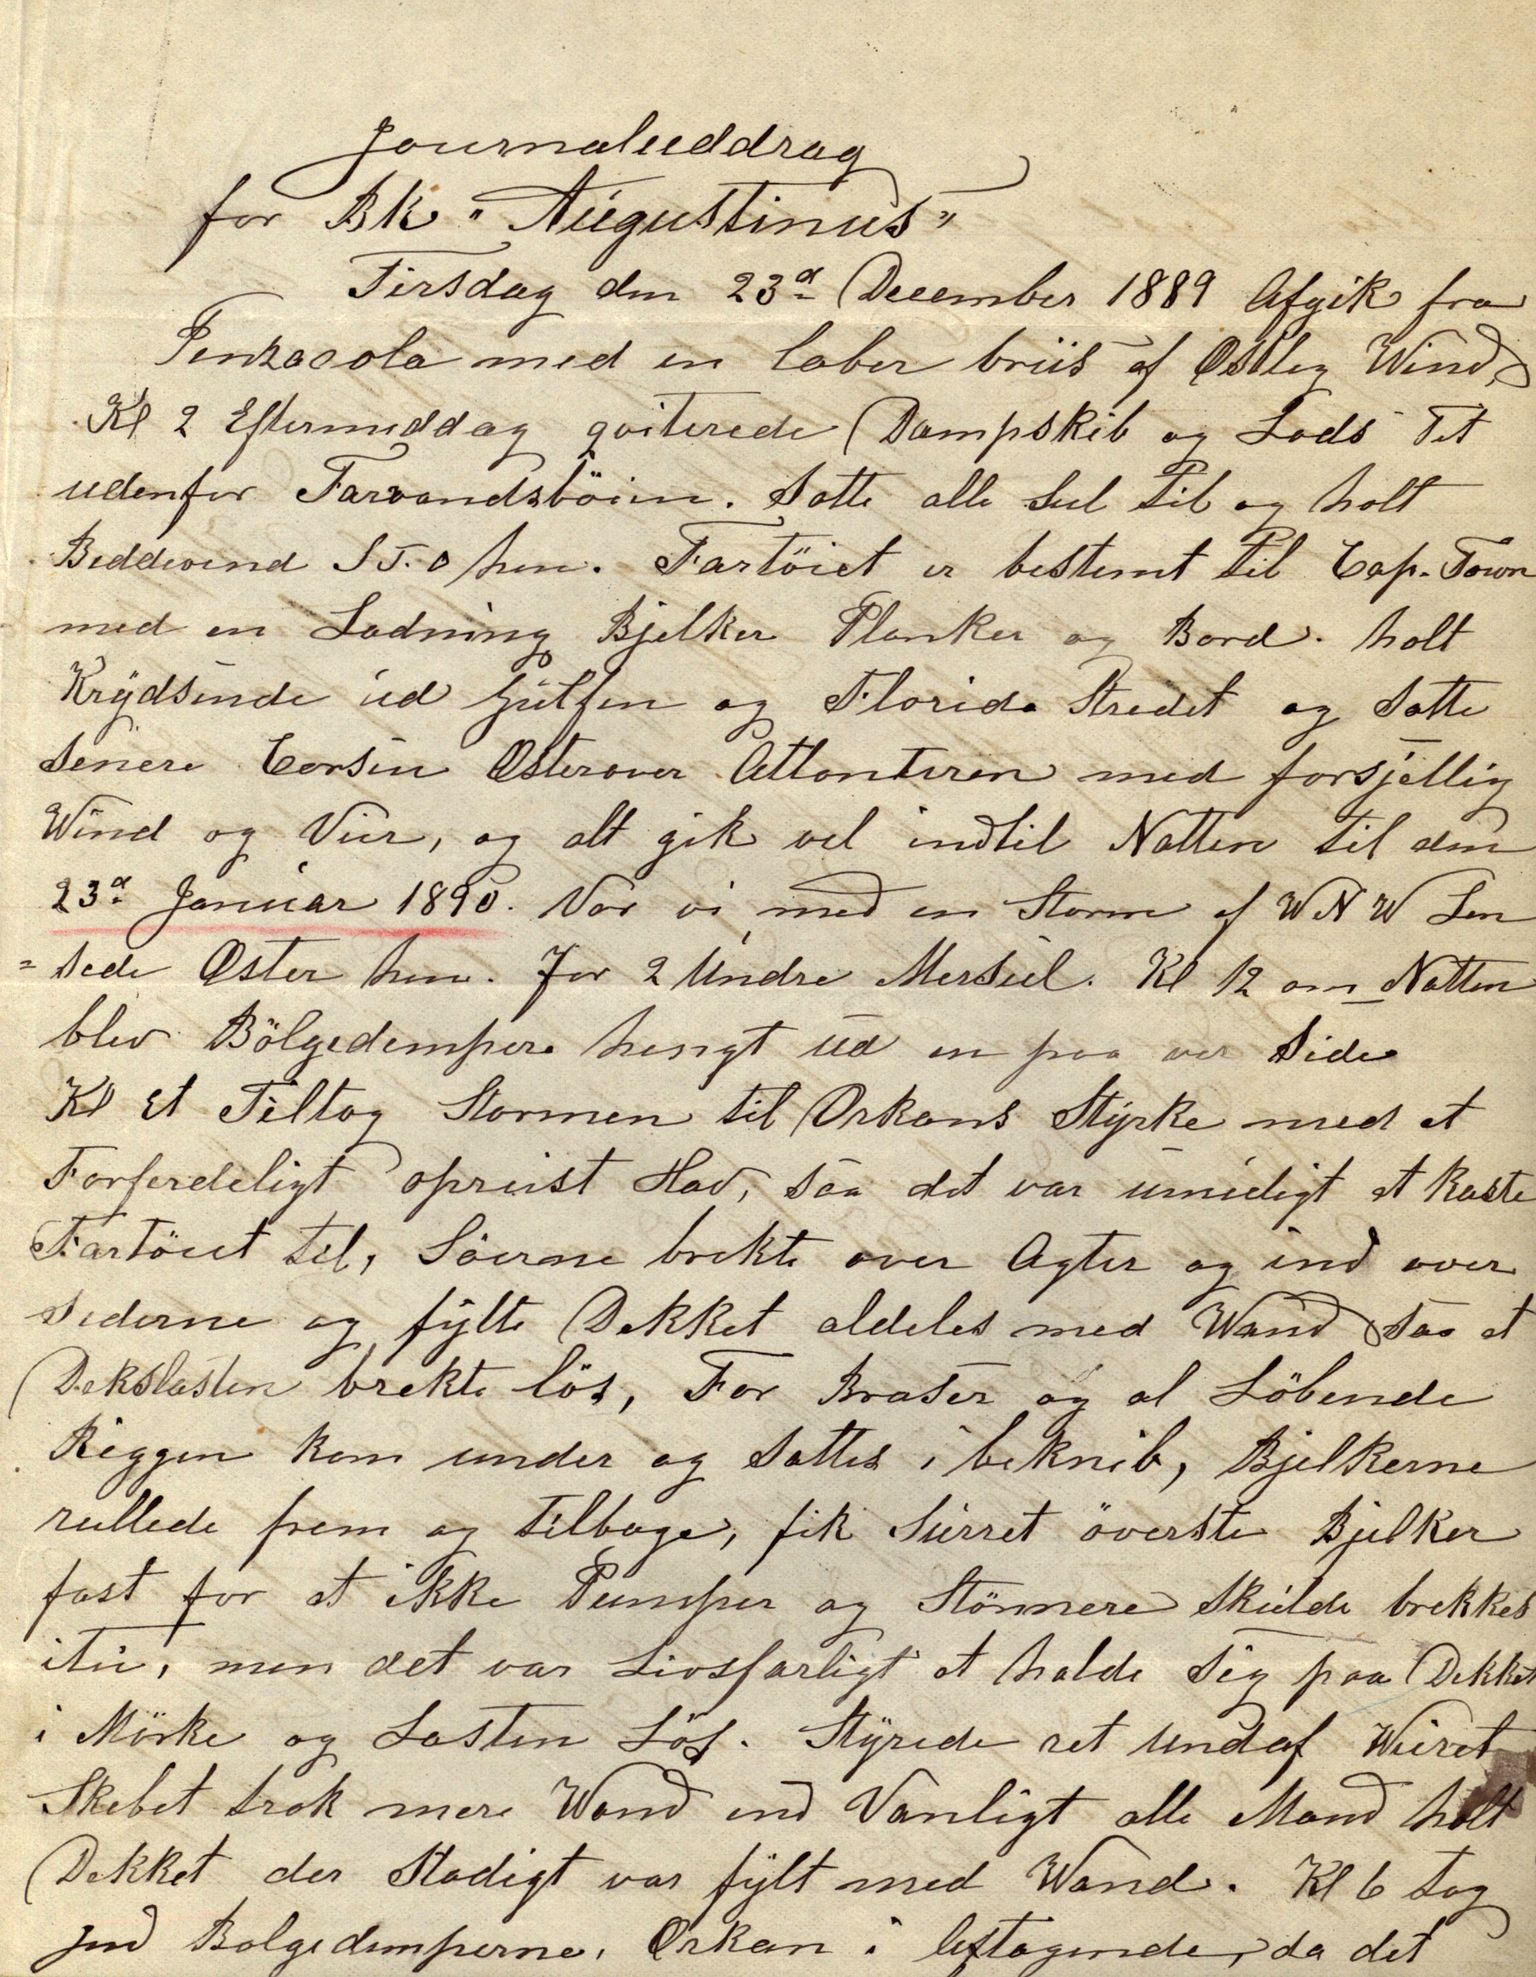 Journaluddrag
for Bk "Augustinus"
Tirsdag den 23d December 1889 Afgik fra
Penzacola med en laber briis af Østleg Wind,
Kl 2 Eftermeddag qviterede Dampskib og Lods Tet
udenfor Farvandsböien. Satte alle Seil til og holt
Beddevend S T. O hen. Fartöiet er bestemt til Cap-Town
med en Ladning Bjelker Planker og Bord. holt
Krÿdsende ud Gulfen og Florida Stredet og Satte
Senere Corsen Østerover Atlanteren med forsjellig
Wind og Veir, og alt gik vel indtil Natten til den
23d Januar 1890. Var vi med en Storm af WNW Len
=sede Øster hen. For 2 Undre Mersseil. Kl 12 om Natten
blev Bölgedempere hengt ud en paa ver Side
Kl Et Tiltog Stormen til Orkans Stÿrke med et
Forferdeligt opreist Hav, saa det var umuligt at kaste
Fartöiet til, Söerne brekte over Agter og ind over
Siderne og fÿlte Dekket aldeles med Wand saa at
Dekslasten brekte lös, For Braser og al Löbende
Riggen kom under og Sattes i beknib, Bjelkerne
rullede frem og tilbage, fik Surret överste Bjelker
fast for at ikke Pumper og Stönnere skulde brekkes
itu, men det var Livsfarligt at holde Sig paa Dekket
i Mörke og Lasten Lös. Stÿrede ret undaf Weiret
Skibet trak mere Wand end Vanligt alle Mand holt
Dekket der Stadigt var fÿlt med Wand. Kl 6 tog
ind Bolgedemperne, Orkan i Aftagende, da det